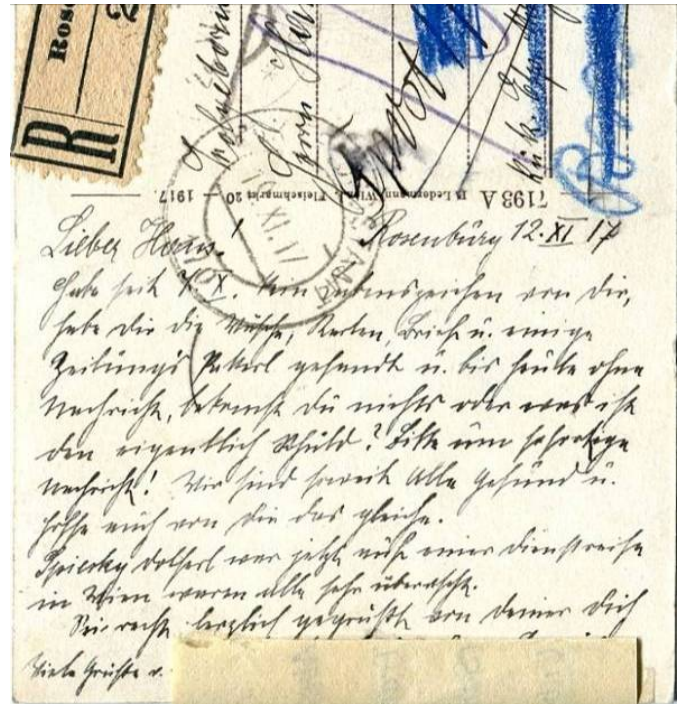 Ros
2
R
Herrn
7193 A B. Ledermann, Wien, I. Fleischmarkt 20 — 1917.
Lieber Hans! Rosenburg 12. XI 17
Habe seit 7. X. kein Lebenszeichen von Dir,
habe Dir die Wäsche, Karten, Brief u. einige
Zeitungs Packerl gesandt u. bis heute ohne
Nachricht, bekomst Du nichts oder was ist
den eigentlich Schuld? Bitte um sofortige
Nachricht! Wir sind soweit Alle Gesund u.
hoffe auch von Dir das gleiche.
war jetzt auf einer Dienstreise
in Wien waren alle sehr überrascht.
Sei recht herzlich gegrüßt von Deiner Dich
Viele Grüße v.